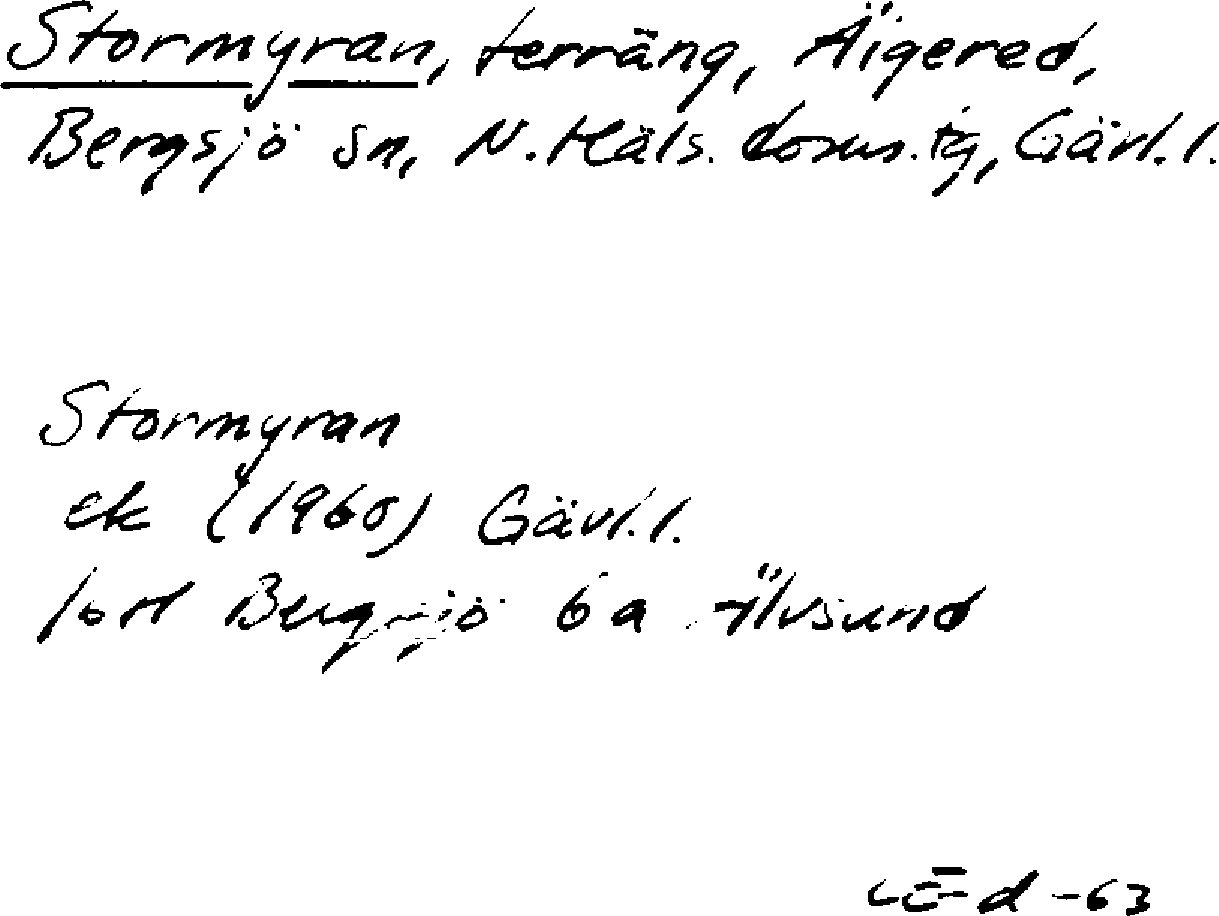 Stormyran, terräng, Äigered,
Bergsjö sn, N. Häls. doms. tg, Gävl. l.
Stormyran
ek (1960) Gävl. l.
Bergsjö 6a Älvsund
d -63